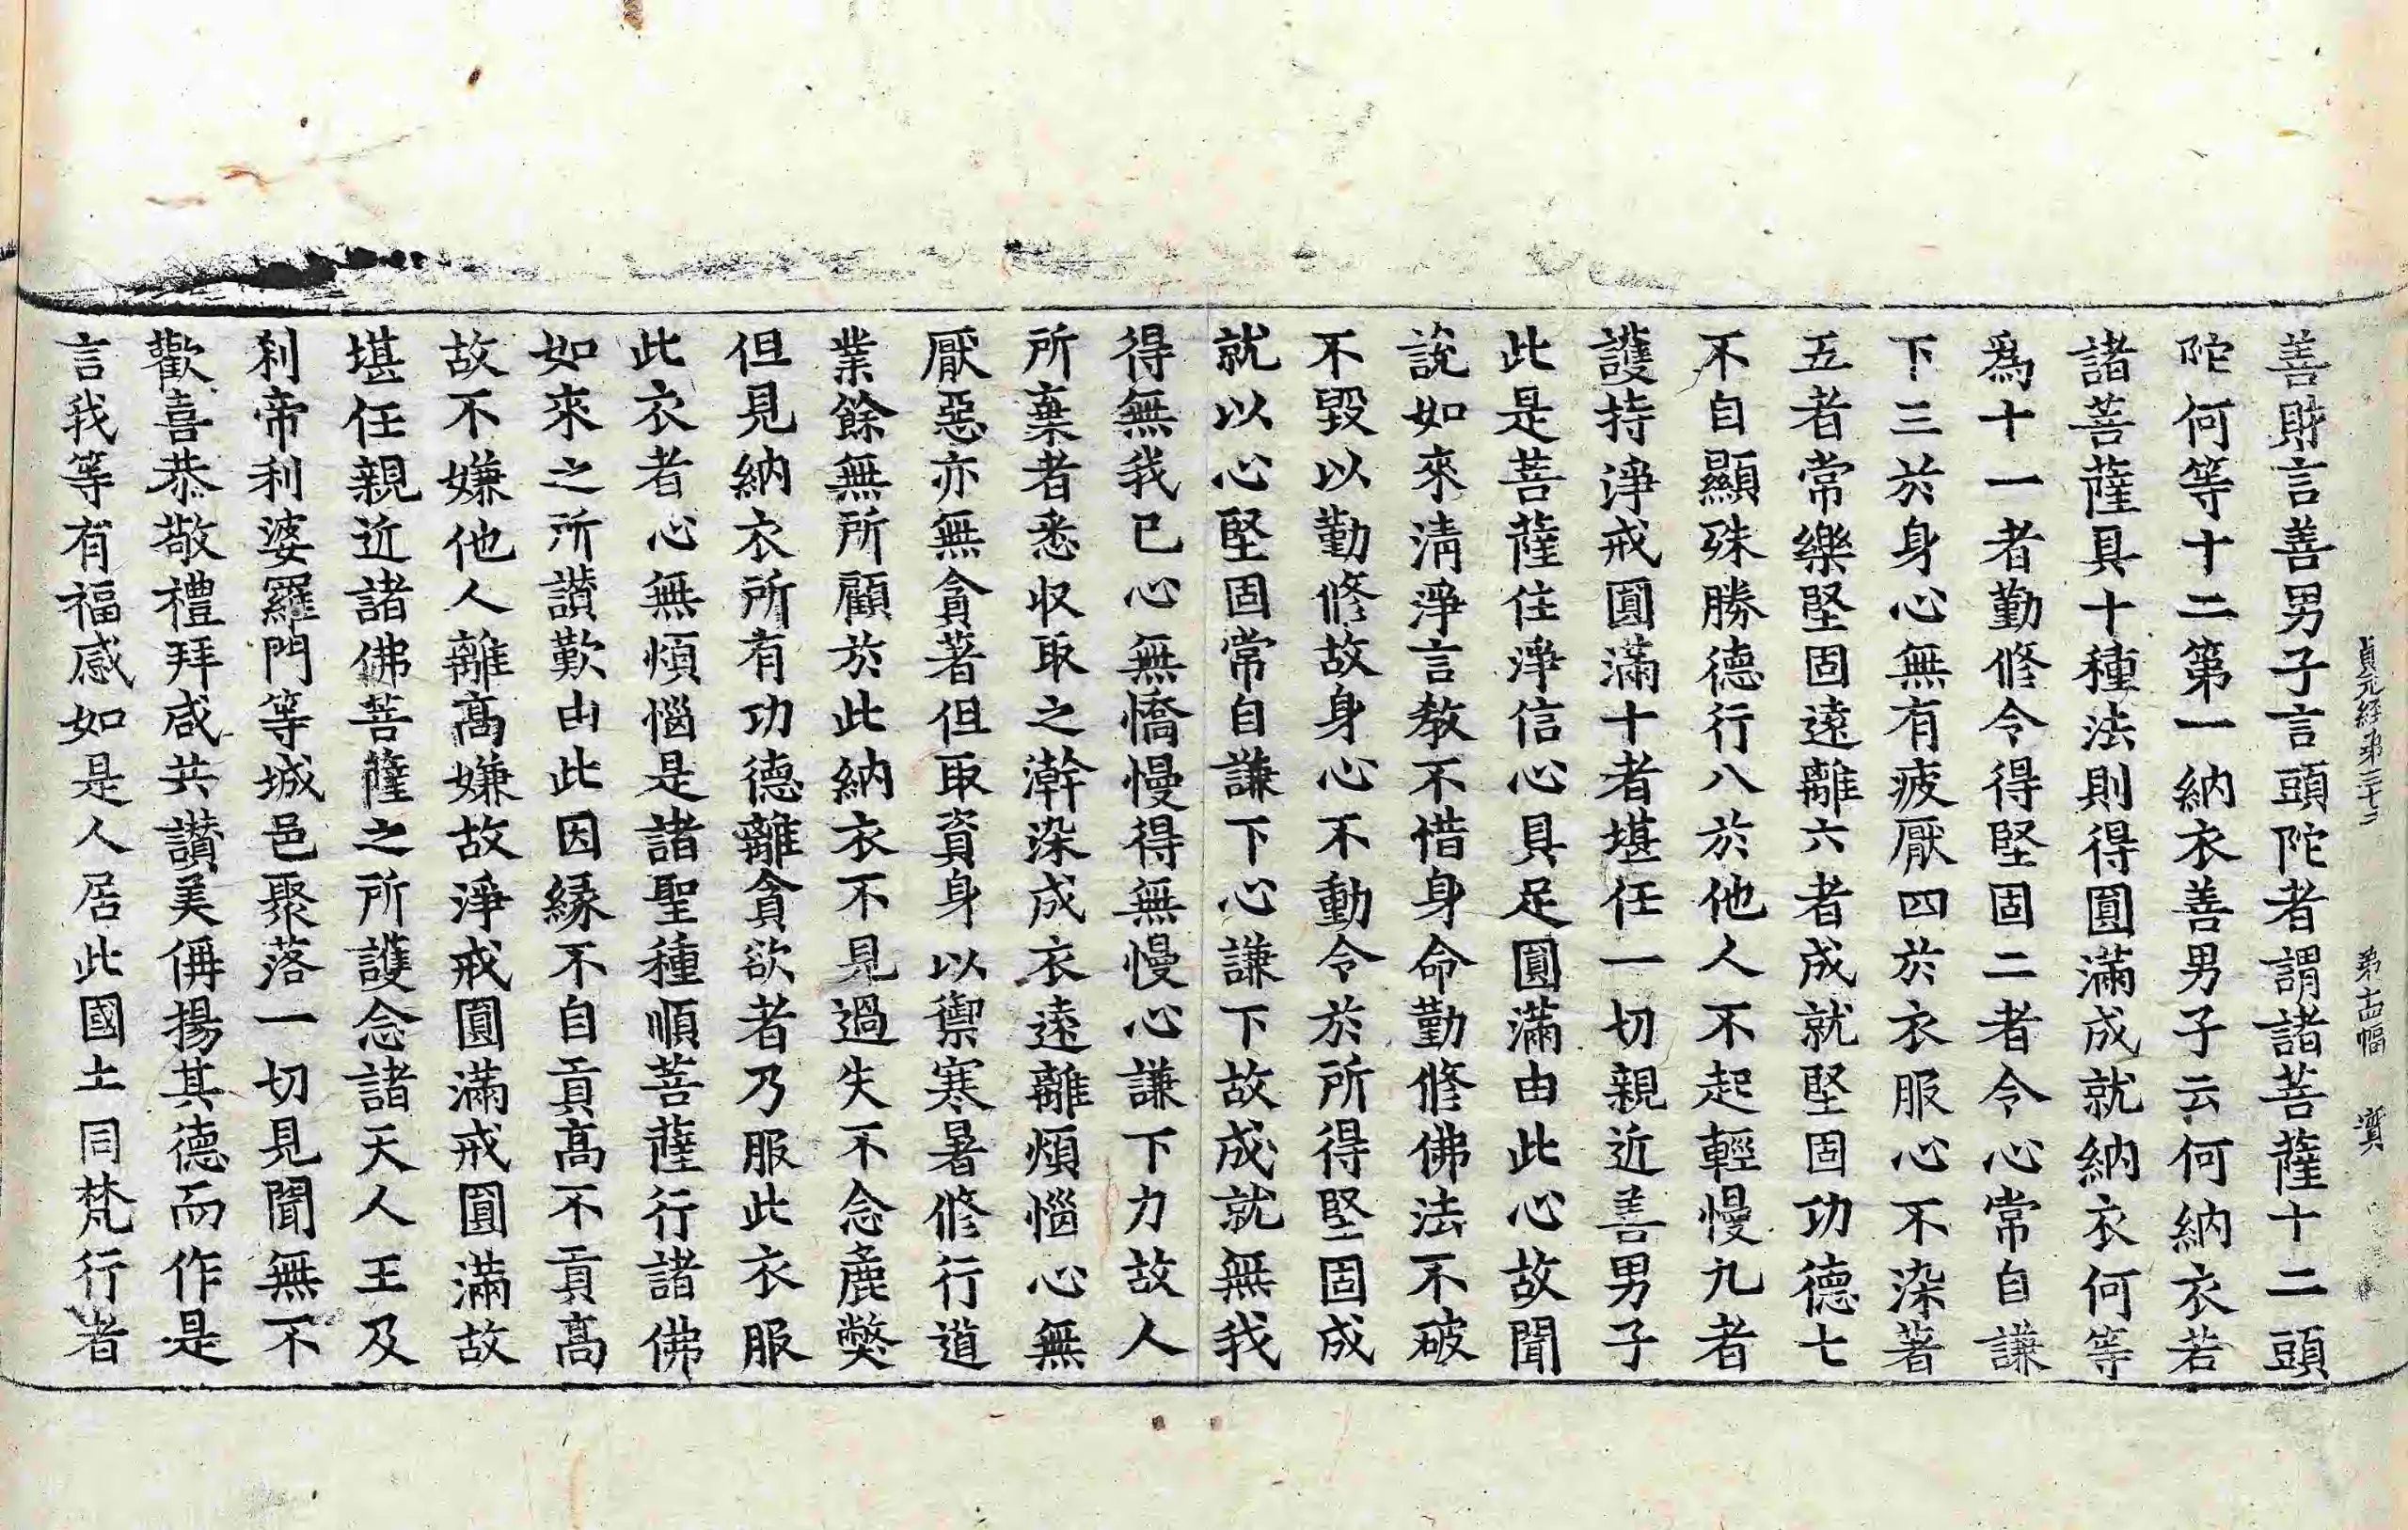 貞元経第三十二　第十四幅　實
善財言善男子言頭陀者謂諸菩薩十二頭
陀何等十二第一納衣善男子云何納衣若
諸菩薩具十種法則得圓滿成就納衣何等
爲十一者勤修令得堅固二者令心常自謙
下三於身心無有疲厭四於衣服心不染著
五者常樂堅固遠離六者成就堅固功德七
不自顯殊勝德行八於他人不起輕慢九者
護持淨戒圓滿十者堪任一切親近善男子
此是菩薩住淨信心具足圓滿由此心故聞
說如來清淨言教不惜身命勤修佛法不破
不毀以勤修故身心不動令於所得堅固成
就以心堅固常自謙下心謙下故成就無我
得無我已心無憍慢得無慢心謙下力故人
所棄者悉収取之澣染成衣遠離煩惱心無
厭惡亦無貪著但取資身以禦寒暑修行道
業餘無所顧於此納衣不見過失不念麁獘
但見納衣所有功德離貪欲者乃服此衣服
此衣者心無煩惱是諸聖種順菩薩行諸佛
如來之所讃歎由此因縁不自貢髙不貢髙
故不嫌他人離髙嫌故淨戒圓滿戒圓滿故
堪任親近諸佛菩薩之所護念諸天人王及
刹帝利婆羅門等城邑聚落一切見聞無不
歡喜恭敬禮拜咸共讃美偁揚其德而作是
言我等有福感如是人居此國土同梵行者